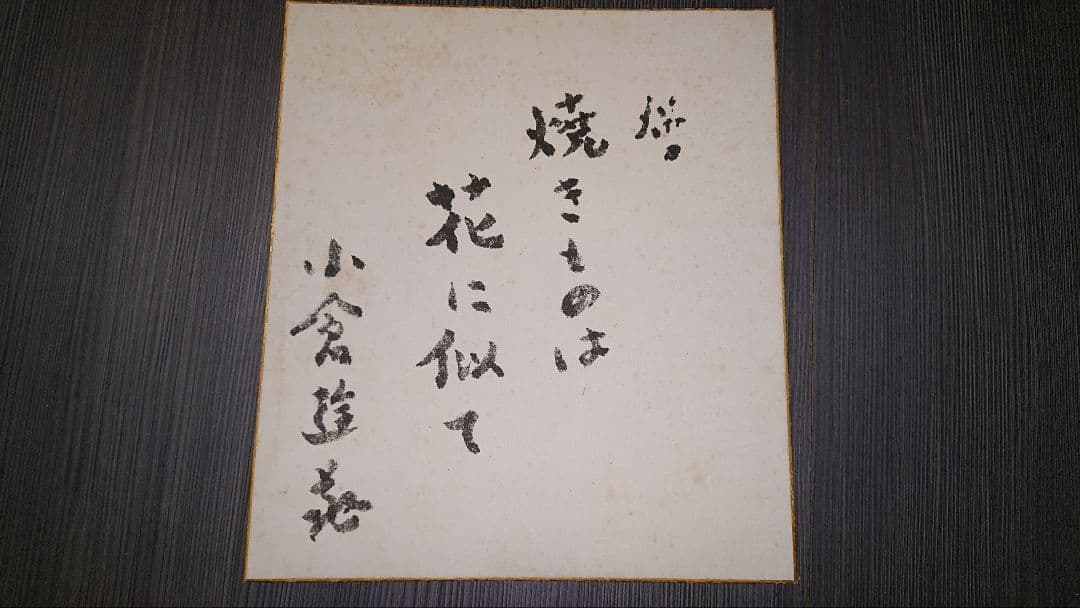 焼きものは
花に似て
小倉